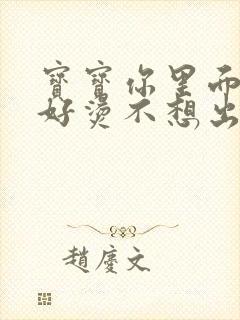 寶寶你里面
好燙不想出
趙慶文